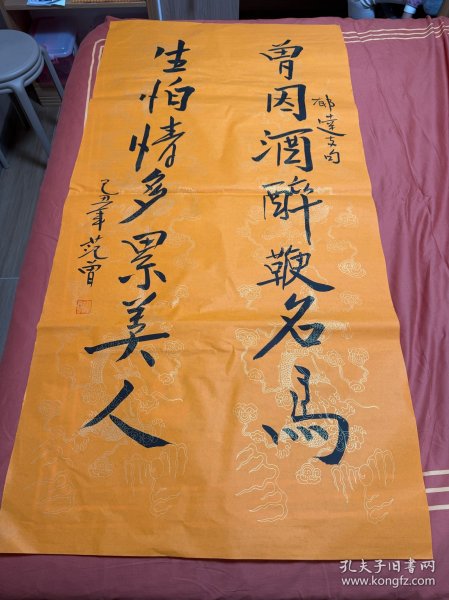 曾因酒醉鞭名馬
郁達夫句
生怕情多累美人
己丑年 范曾
孔夫子旧书网
www.kongfz.com